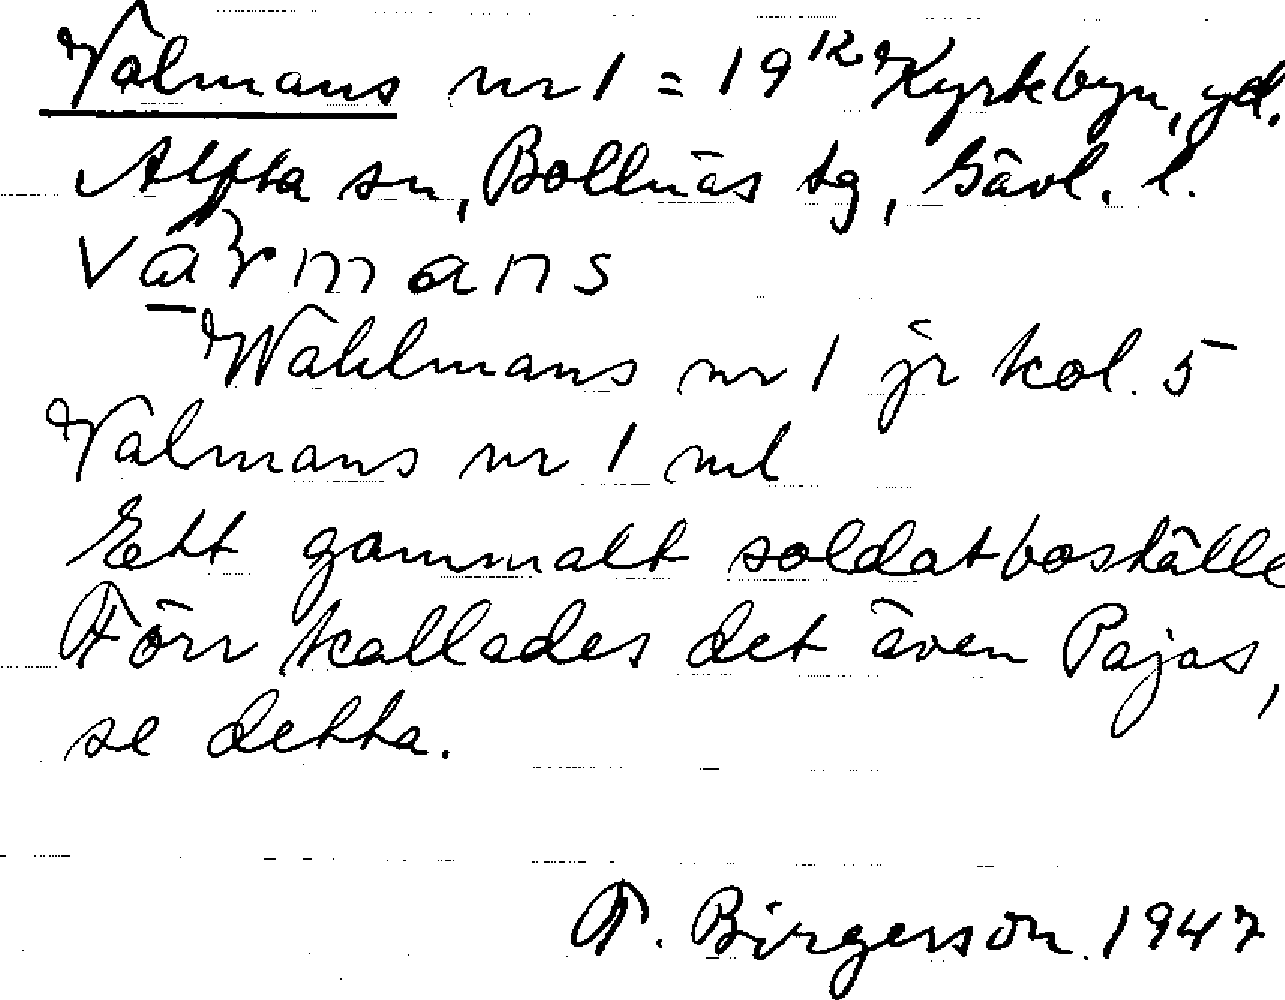 Valmans nr 1 = 19¹² Kyrkbyn, gd.
Alfta sn, Bollnäs tg, Gävl. l.
Wahlmans nr 1 jr kol. 5
Valmans nr 1 ml
Ett gammalt soldatboställe
Förr kallades det även Pajas,
se detta.
F. Birgerson 1947